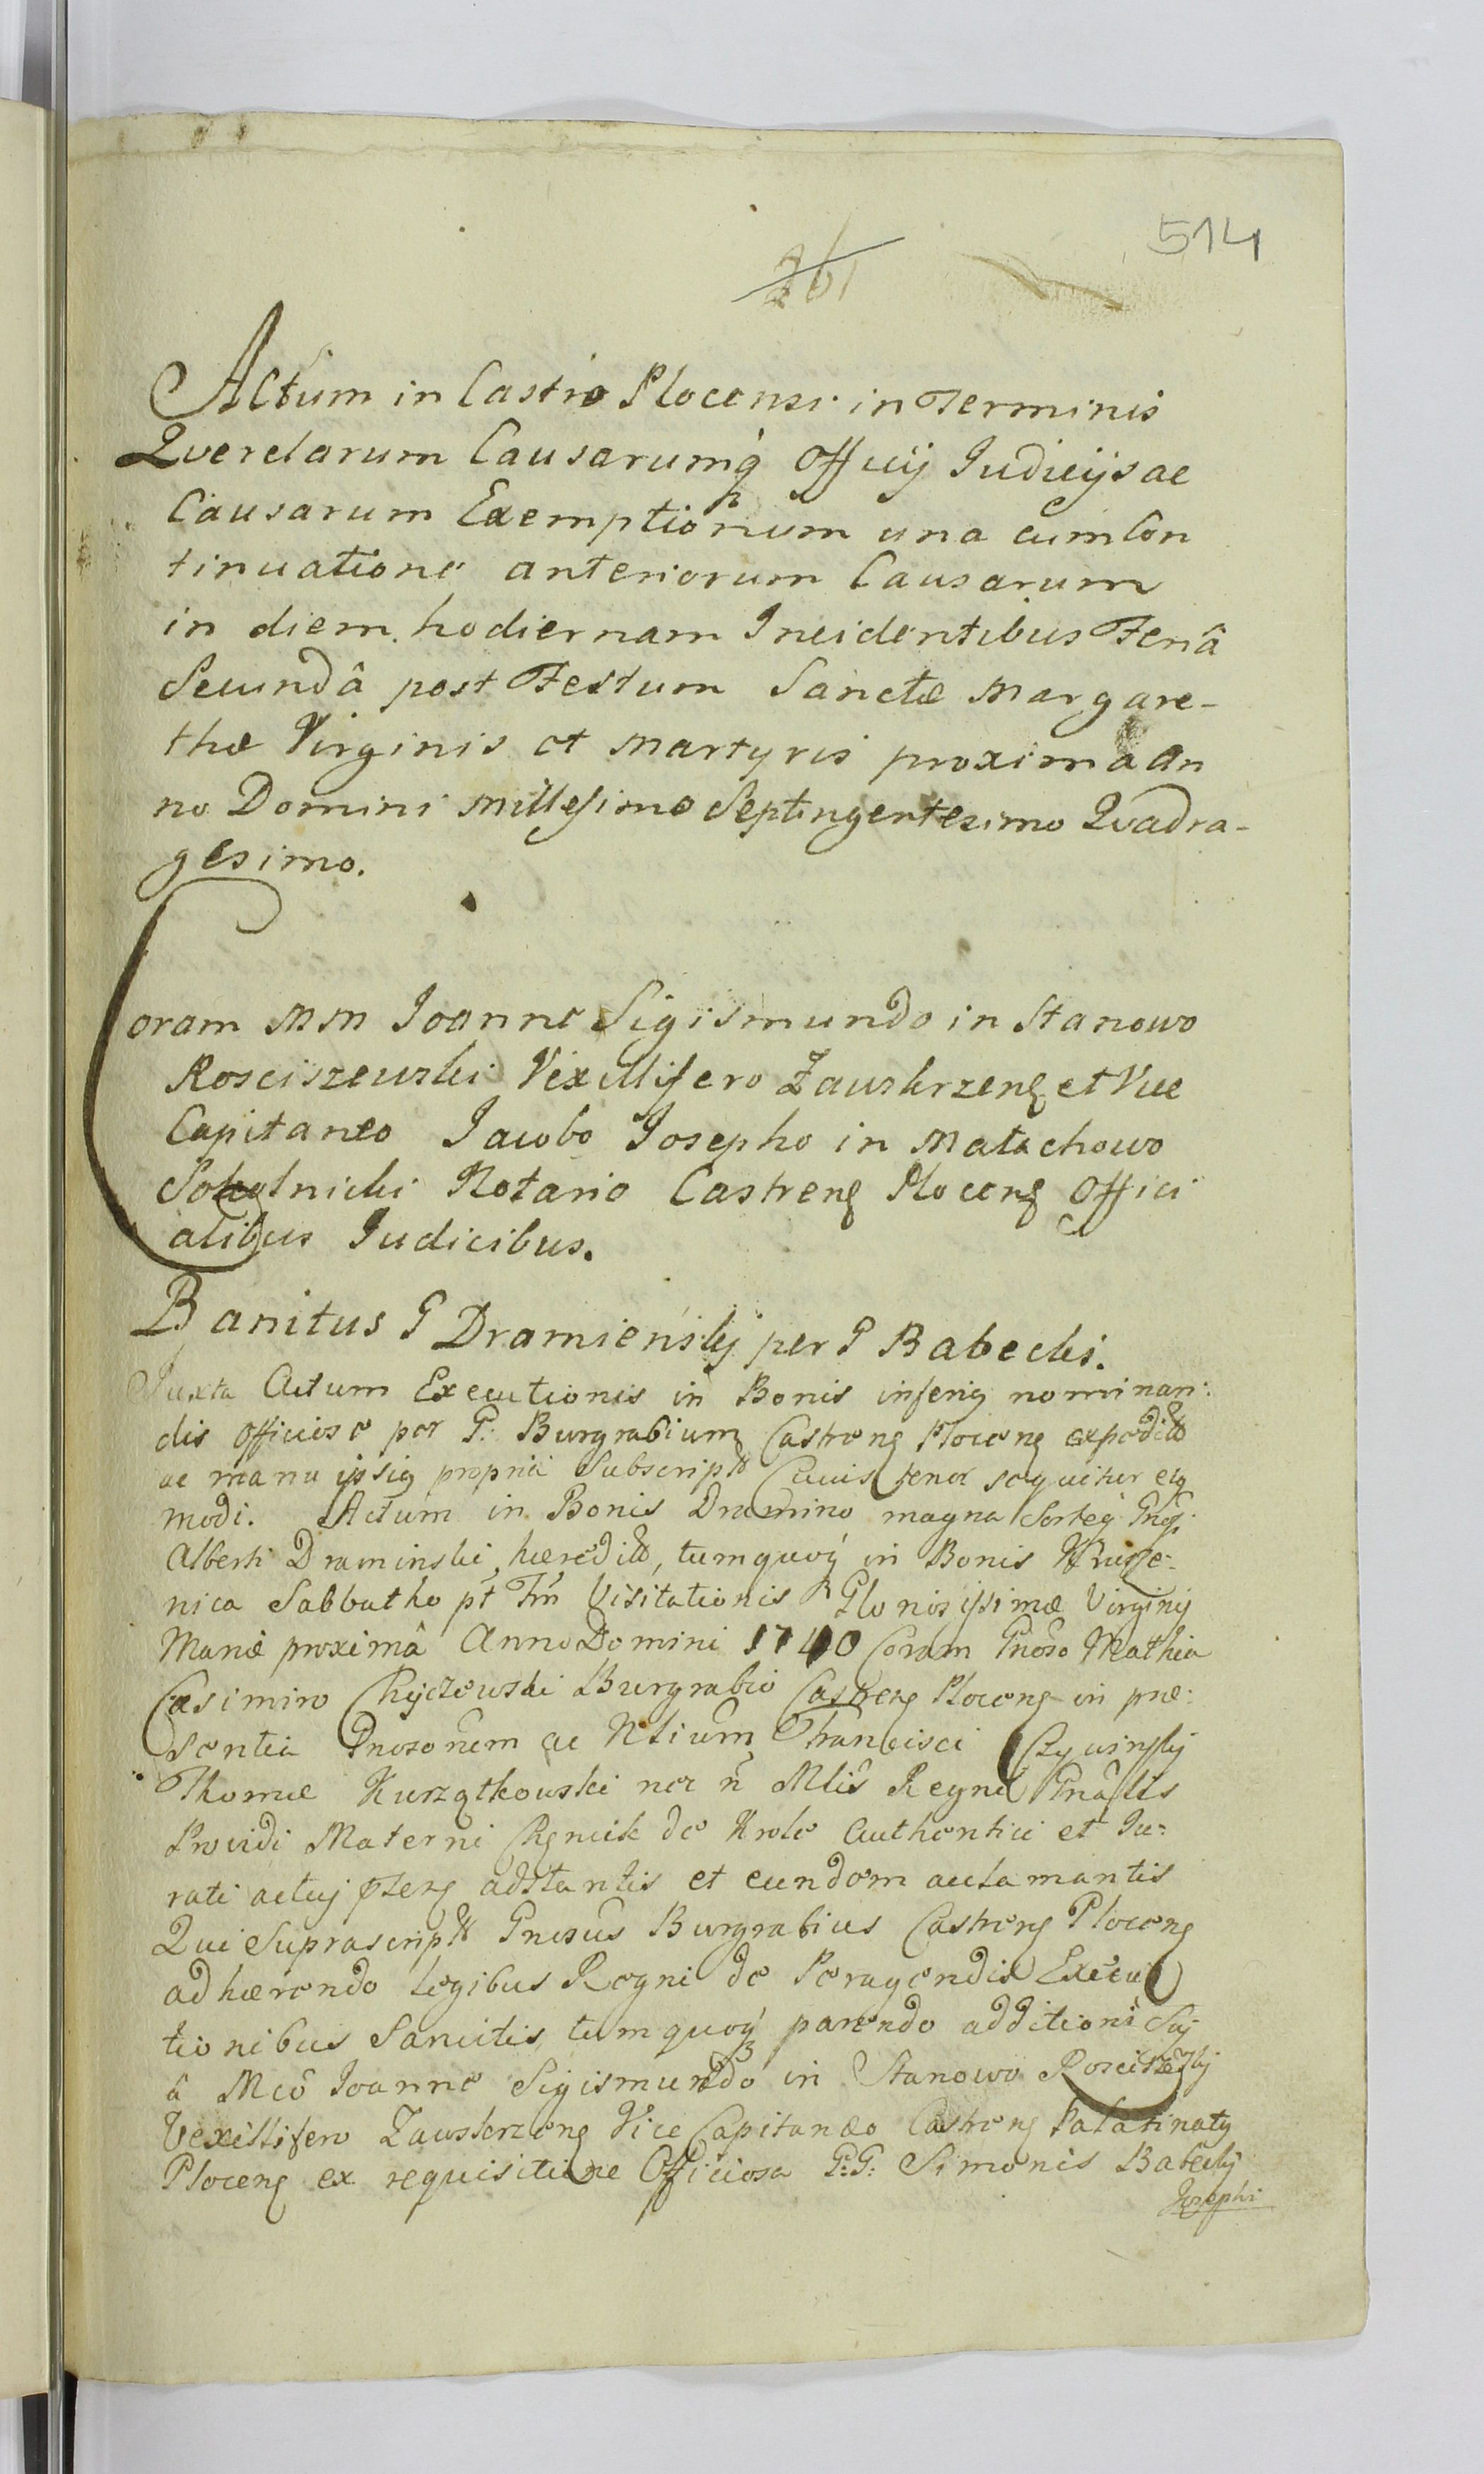 514
261
Actum in Castro Plocensi in Terminis
Qverelarum Causarumq́ Officij Judicijs ac
Causarum Exemptionum una cum Con
tinuatione anteriorum Causarum
in diem hodiernam Incidentibus Feriâ
Secundâ post Festum Sanctæ Margare-
thæ Virginis et Martyris proximâ An
no Domini Millesimo Septingentesimo Qvadra-
gesimo.
Coram MM Joanne Sigismundo in Stanowo
Rosciszewski Vexillifero Zawskrzenȩ et Vice
Capitaneo Jacobo Josepho in Małachowo
Sokolnicki Notario Castrenȩ Plocenȩ Offici
alibus Judicibus.
Banitus G Dramiénskj per G Babecki.
Juxta Actum Executionis in Bonis inferiȩ nominan:
dis officiose per G: Burgrabium Castrenȩ Plocenȩ expedit
ac manu ipsiȩ propria Subscript Cuius tenor sequitur eiȩ
modi. Actum in Bonis Dramino magna Sorteq́
Alberti Draminski hæredit, tumquoq́ in Bonis
nica Sabbatho pt Fm Visitationis B Gloriosissimæ Virginis
Mariæ proximâ Anno Domini 1740 Coram Gnoso Mathia
Casimiro Chyczewski Burgrabio Castrenȩ Plocenȩ in præ:
sentia Gnosorum ac Nlium Francisci
Thomæ Kurzątkowski nec n Mlis Regni Gnalis
Providi Materni de Krole Authentici et Ju:
rati actuj pntenȩ adstantis et eundem acclamantis
Qui Suprascript Gnosus Burgrabius Castrenȩ Plocenȩ
adhærendo legibus Regni de Peragendis Execu
tionibus Sancitis tumquoq́ parendo additioni Suj
â Mco Joanne Sigismundo in Stanowo Rosciszewskj
Vexillifero Zawskrzenȩ Vice Capitaneo Castrenȩ Palatinatȩ
Plocenȩ ex requisitione Officiosa G:G: Simonis Babeckj
Josephi